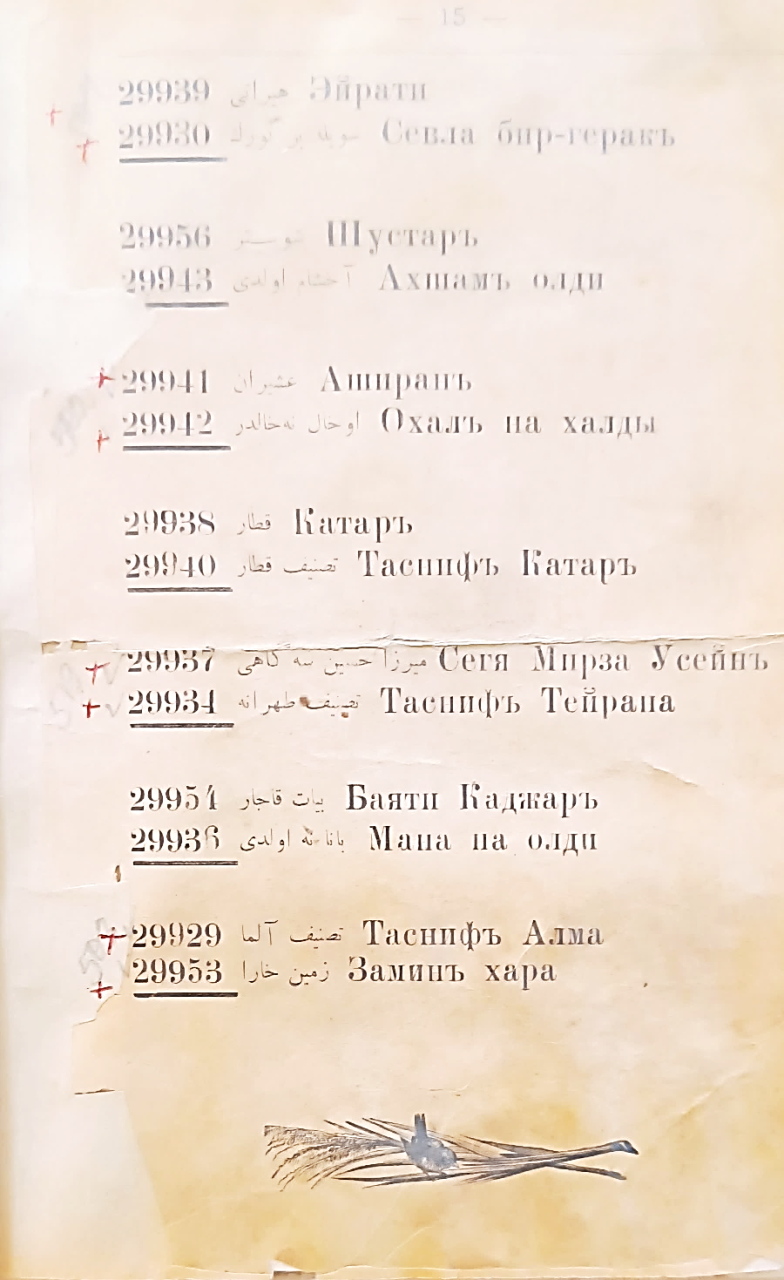 — 15 —
29939 هیراتی Эйрати
29930 سویله بر گورك Севла бир-геракъ
29956 شوستر Шустаръ
29943 آخشام اولدی Ахшамъ олди
29941 عشیران Аширанъ
29942 اوخال نه‌خالدر Охалъ на халды
29938 قطار Катаръ
29940 تصنیف قطار Тасиифъ Катаръ
29937 میرزا حسین سه گاهی Сегя Мирза Усейнъ
29934 تصنیف طهرانه Тасиифъ Тейрана
29954 بیات قاجار Баяти Каджаръ
29936 نه اولدی Мана на олди
29929 تصنیف آلما Таснифъ Алма
29953 زمین خارا Заминъ хара